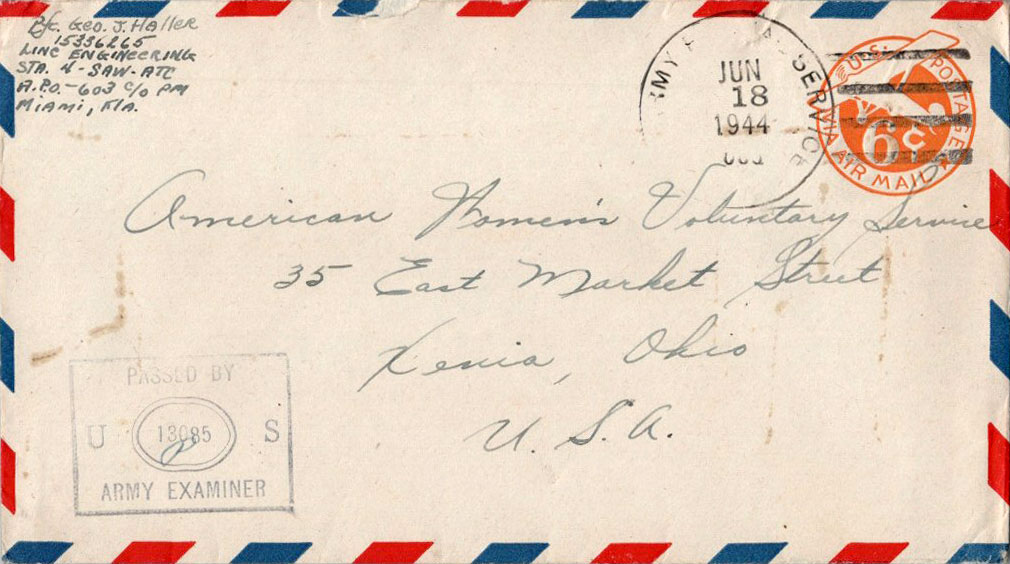 Pfc. Geo. J. Haller
15336265
Line Engineering
Sta. 4 - SAW-ATC
A.P.O. - 603 c/o PM
Miami, Fla.
JUN
18
1944
SERVICE
U.S. POSTAGE
6¢
VIA AIR MAIL
American Women's Voluntary Service
35 East Market Street
Xenia, Ohio
U.S.A.
PASSED BY
U 13085 S
ARMY EXAMINER